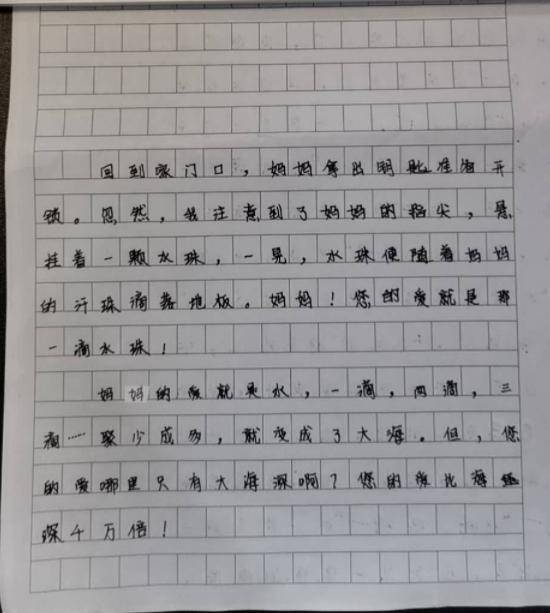 回到家门口，妈妈拿出钥匙准备开
锁。忽然，我注意到了妈妈的指尖，悬
挂着一颗水珠，一晃，水珠便随着妈妈
的汗珠滴落地板。妈妈！您的爱就是那
一滴水珠！
妈妈的爱就是水，一滴，两滴，三
滴……聚少成多，就变成了大海。但，您
的爱哪里只有大海深啊？您的爱比海还
深千万倍！